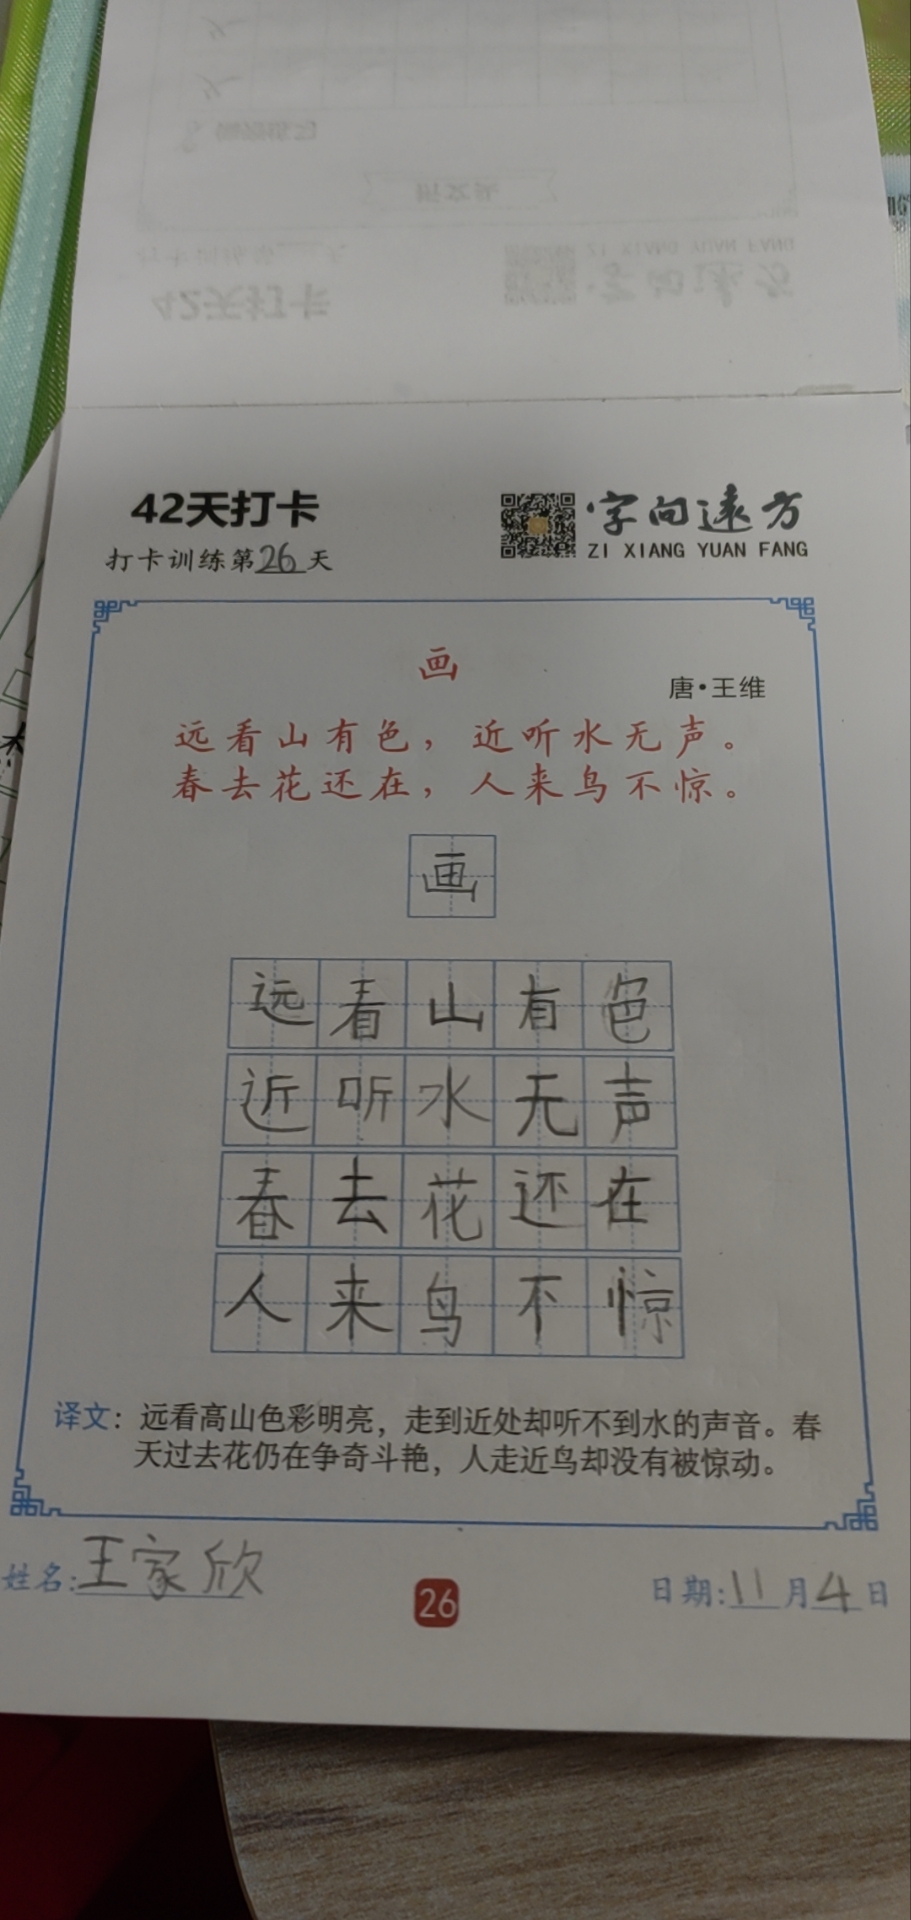 42天打卡
字向远方
打卡训练第26天
ZI XIANG YUAN FANG
画
唐·王维
远看山有色，近听水无声。
春去花还在，人来鸟不惊。
画
远看山有色
近听水无声
春去花还在
人来鸟不惊
译文：远看高山色彩明亮，走到近处却听不到水的声音。春
天过去花仍在争奇斗艳，人走近鸟却没有被惊动。
姓名:王家欣
26
日期:11月4日